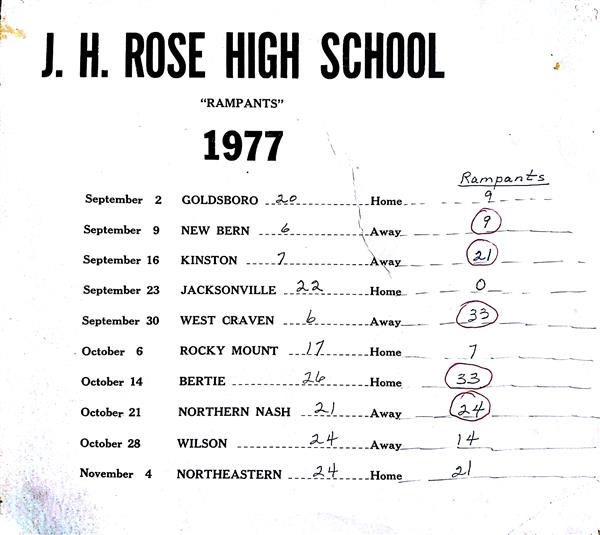 J. H. ROSE HIGH SCHOOL
"RAMPANTS"
1977
Rampants
September 2 GOLDSBORO 20 Home 9
September 9 NEW BERN 6 Away 9
September 16 KINSTON 7 Away 21
September 23 JACKSONVILLE 22 Home 0
September 30 WEST CRAVEN 6 Away 33
October 6 ROCKY MOUNT 17 Home 7
October 14 BERTIE 26 Home 33
October 21 NORTHERN NASH 21 Away 24
October 28 WILSON 24 Away 14
November 4 NORTHEASTERN 24 Home 21